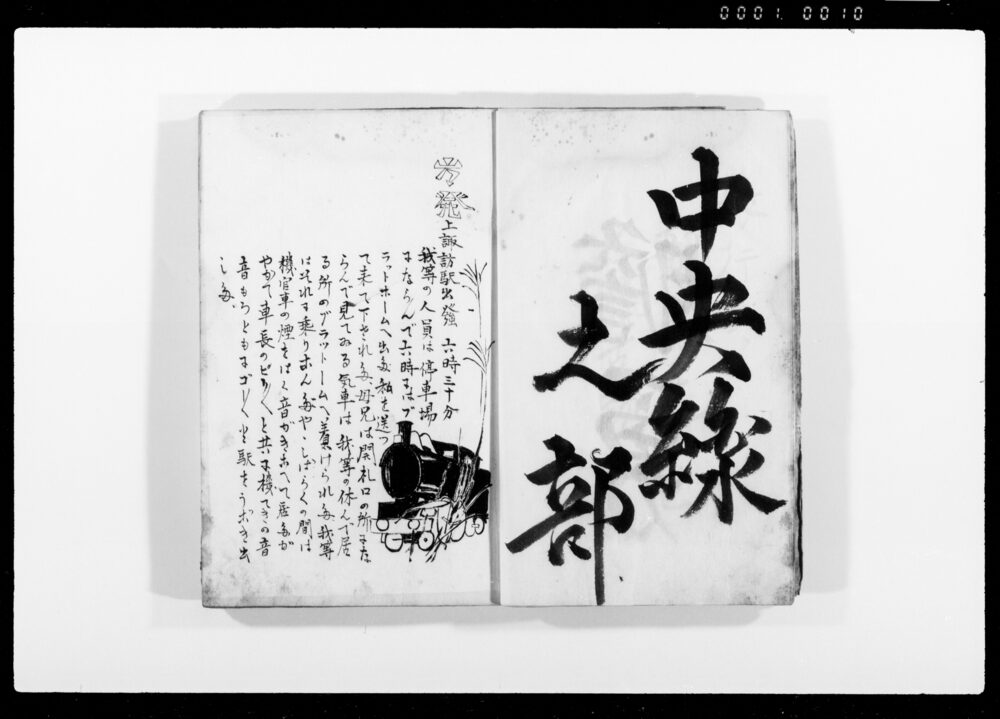 0001.0010
中央線
之部
出発
上諏訪駅出發 六時三十分
我等の人員は停車場
にならんで六時にはプ
ラットホームへ出た 私を送つ
て来て下された母兄は開札口の所にな
らんで見てゐる 気車は我等の休んで居
る所のプラットームへ着けられた 我等
はそれに乗りこんだ やゝしばらくの間は
機官車の煙をはく音がきこへて居たが
やがて車長のピリ〳〵と共に機てきの音
音もろともにゴリ〳〵と駅をうごき出
した、